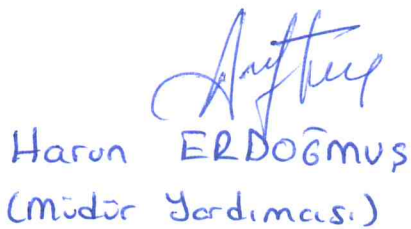 Harun ERDOĞMUŞ
(Müdür Yardımcısı)